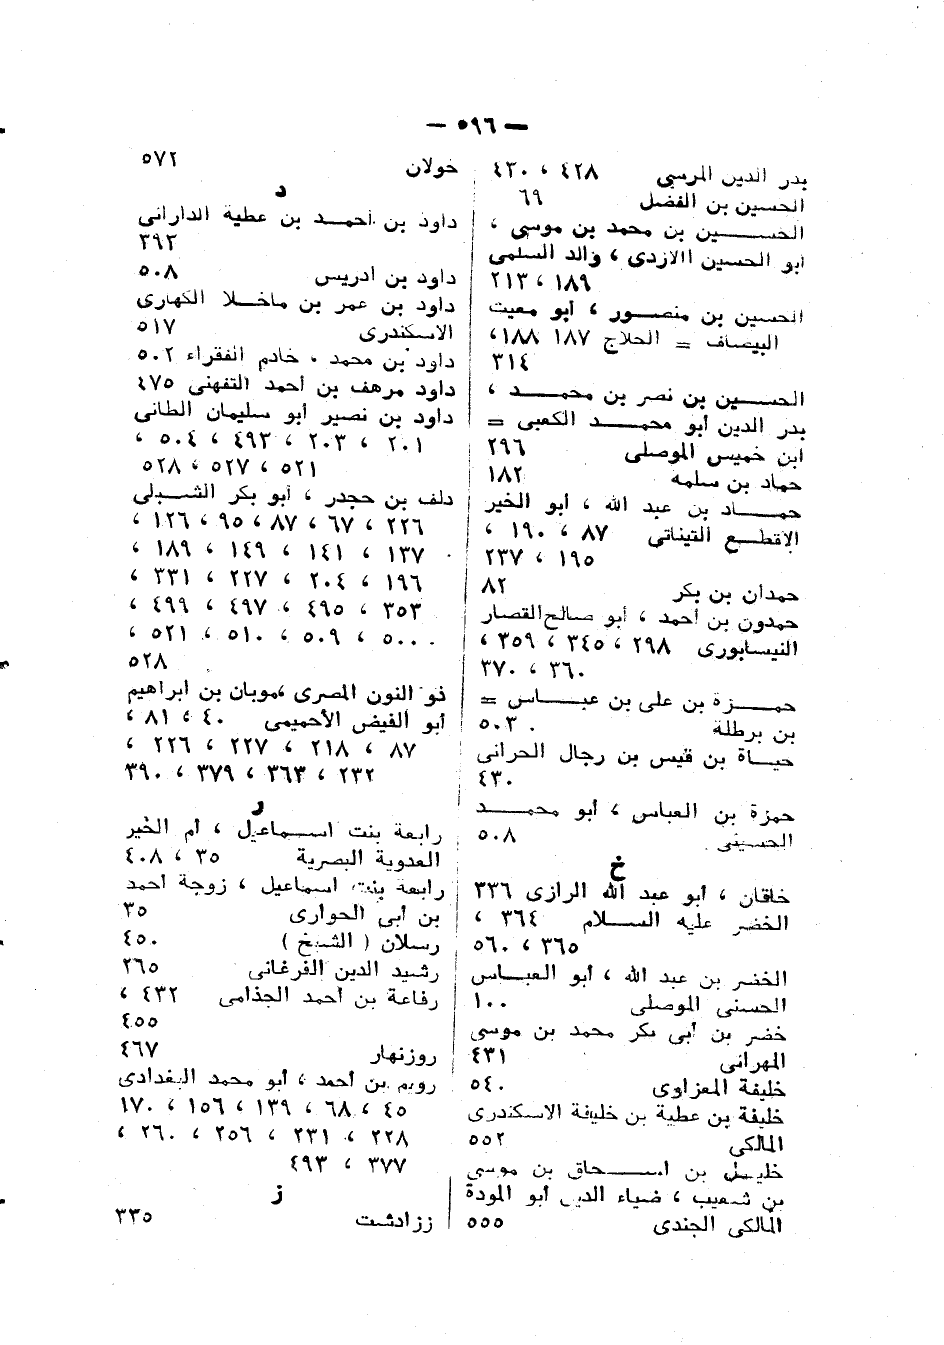 — ٥٩٦ —
بدر الدين المرسي ٤٢٨ ، ٤٣٠
الحسين بن الفضل ٦٩
الحســـين بن محمد بن موسى ،
أبو الحسين الازدى ، والد السلمى
١٨٩ ، ٢١٣
الحسين بن منصور ، أبو معيث
البيضاف = الحلاج ١٨٧ ١٨٨،
٣١٤
الحســـين بن نصر بن محمـــد ،
بدر الدين أبو محمـــد الكعبى =
ابن خميس الموصلى ٢٩٦
حماد بن سلمه ١٨٢
حمـــاد بن عبد الله ، أبو الخير
الاقطـــع التيناتى ٨٧ ، ١٩٠ ،
١٩٥ ، ٢٣٧
حمدان بن بكر ٨٢
حمدون بن أحمد ، أبو صالح القصار
النيسابورى ٢٩٨ ، ٣٤٥ ، ٣٥٩ ،
٣٦٠ ، ٣٧٠
حمـــزة بن على بن عبـــاس =
بن برطلة ٥٠٣
حيـــاة بن قيس بن رجال الحرانى
٤٣٠
حمزة بن العباس ، أبو محمـــد
الحسينى ٥٠٨
خ
خاقان ، أبو عبد الله الرازى ٣٣٦
الخضر عليه الســـلام ٣٦٤ ،
٣٦٥ ، ٥٦٠
الخضر بن عبد الله ، أبو العبـــاس
الحسنى الموصلى ١٠٠
خضر بن أبى بكر محمد بن موسى
المهرانى ٤٣١
خليفة المعزاوى ٥٤٠
خليفة بن عطية بن خليفة الاسكندرى
المالكى ٥٥٢
خليـــل بن اســـحاق بن موسى
بن شعيب ، ضياء الدين أبو المودة
المالكى الجندى ٥٥٥
خولان ٥٧٢
د
داود بن أحمـــد بن عطية الدارانى
٣٩٢
داود بن ادريس ٥٠٨
داود بن عمر بن ماخـــلا الكهارى
الاسكندرى ٥١٧
داود بن محمد ، خادم الفقراء ٥٠٢
داود مرهف بن أحمد التفهنى ٤٧٥
داود بن نصير أبو سليمان الطائى
٢٠١ ، ٢٠٣ ، ٤٩٣ ، ٥٠٤ ،
٥٢١ ، ٥٢٧ ، ٥٢٨
دلف بن حجدر ، أبو بكر الشـــبلى
٢٢٦ ، ٦٧ ، ٨٧ ، ٩٥ ، ١٢٦ ،
١٣٧ ، ١٤١ ، ١٤٩ ، ١٨٩ ،
١٩٦ ، ٢٠٤ ، ٢٢٧ ، ٣٣١ ،
٣٥٣ ، ٤٩٥ ، ٤٩٧ ، ٤٩٩ ،
٥٠٠ ، ٥٠٩ ، ٥١٠ ، ٥٢١ ،
٥٢٨
ذو النون المصرى ، موبان بن ابراهيم
أبو الفيض الأحميمى ٤٠ ، ٨١ ،
٨٧ ، ٢١٨ ، ٢٢٧ ، ٢٢٦ ،
٢٣٢ ، ٣٦٣ ، ٣٧٩ ، ٣٩٠
ر
رابعة بنت اســـماعيل ، أم الخير
العدوية البصرية ٣٥ ، ٤٠٨
رابعة بنت اسماعيل ، زوجة أحمد
بن أبى الحوارى ٣٥
رسلان ( الشيخ ) ٤٥٠
رشيد الدين الفرغانى ٢٦٥
رفاعة بن أحمد الجذامى ٤٣٢ ،
٤٥٥
روزنهار ٤٦٧
رويم بن أحمد ، أبو محمد البغدادى
٤٥ ، ٦٨ ، ١٣٩ ، ١٥٦ ، ١٧٠
٢٢٨ ، ٢٣١ ، ٢٥٦ ، ٢٦٠ ،
٣٧٧ ، ٤٩٣
ز
ززادشت ٣٣٥